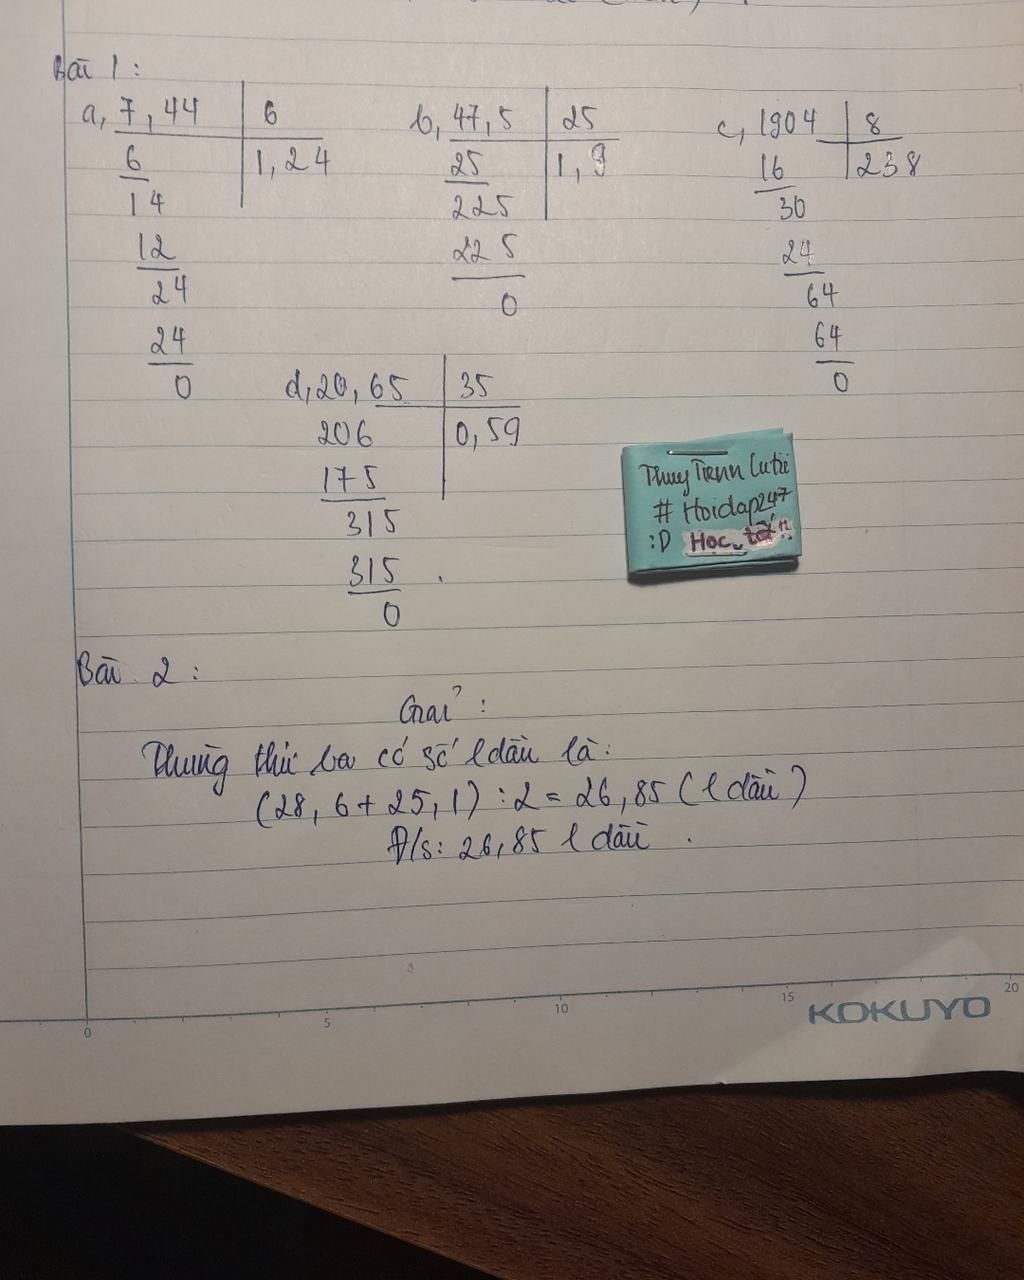 Bài 1:
a, 7,44 | 6
6 | 1,24
14
12
24
24
0
b, 47,5 | 25
25 | 1,9
225
225
0
c, 1904 | 8
16 | 238
30
24
64
64
0
d, 20,65 | 35
206 | 0,59
175
315
315
0
Thuy Tienn Cutii
# Hoidap247
:D Học tốt!!
Bài 2:
Giải:
Thùng thứ ba có số l dầu là:
(28,6 + 25,1) : 2 = 26,85 (l dầu)
Đ/s: 26,85 l dầu.
0 5 10 15 20
KOKUYO